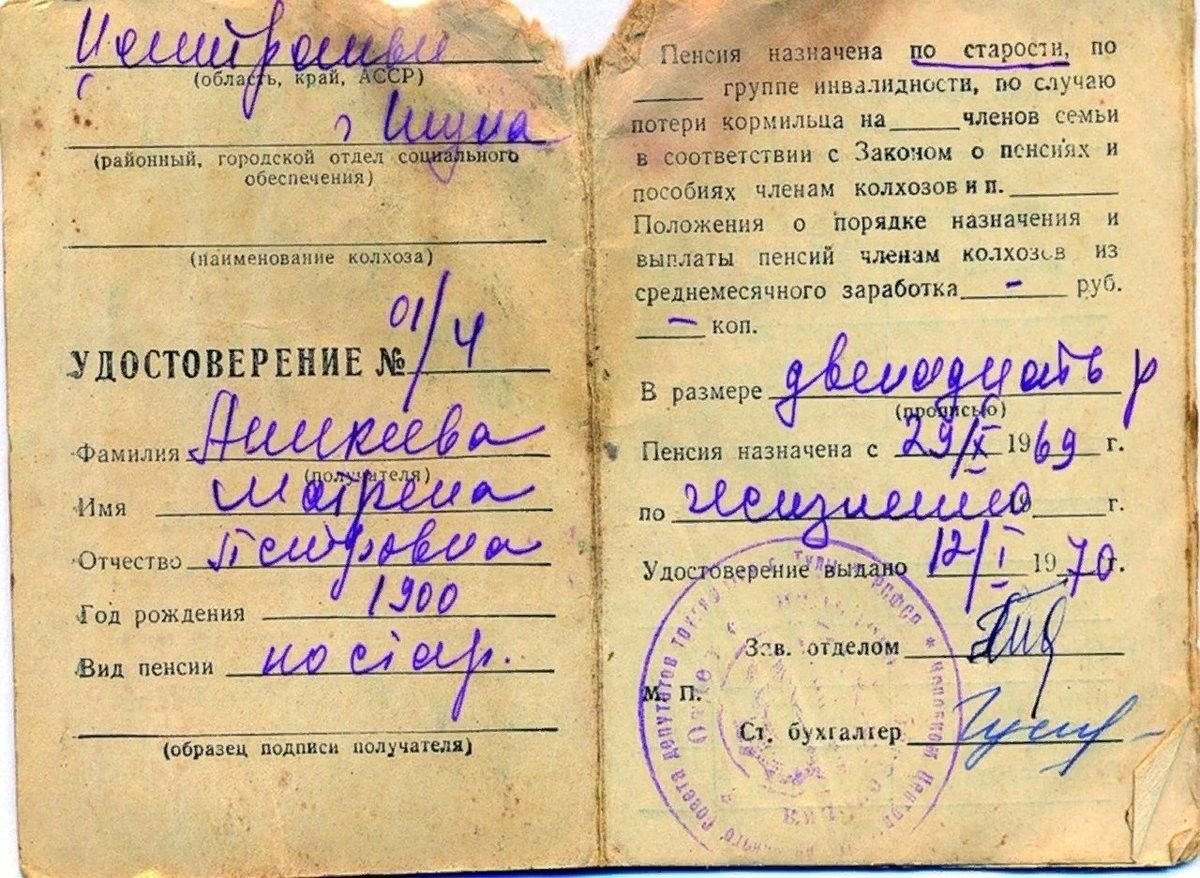 Центральн
(область, край, АССР)
г
(районный, городской отдел социального
обеспечения)
(наименование колхоза)
УДОСТОВЕРЕНИЕ № 01/4
Фамилия Аникеева
(получателя)
Имя Матрена
Отчество Петровна
Год рождения 1900
Вид пенсии по стар.
(образец подписи получателя)
Пенсия назначена по старости, по
____ группе инвалидности, по случаю
потери кормильца на ____ членов семьи
в соответствии с Законом о пенсиях и
пособиях членам колхозов и п. ______
Положения о порядке назначения и
выплаты пенсий членам колхозов из
среднемесячного заработка - руб.
- коп.
В размере двенадцать р
(прописью)
Пенсия назначена с 29/X 1969 г.
по жизненно г.
Удостоверение выдано 12/I 1970 г.
Зав. отделом
М. П.
Ст. бухгалтер
Совета депутатов г. Тулы РСФСР *